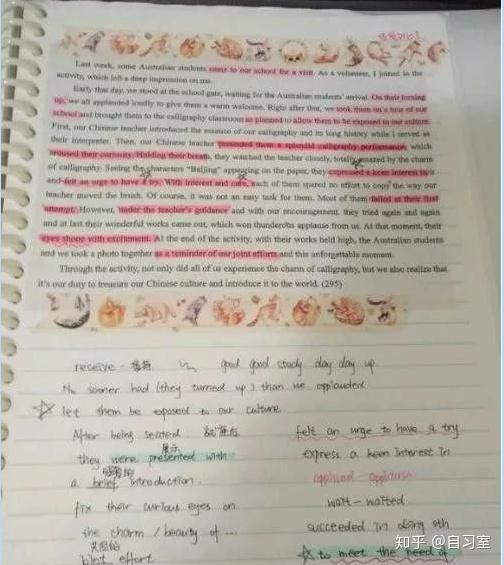 Last week, some Australian students came to our school for a visit. As a volunteer, I joined in the
activity, which left a deep impression on me.
Early that day, we stood at the school gate, waiting for the Australian students' arrival. On their turning
up, we all applauded loudly to give them a warm welcome. Right after that, we took them on a tour of our
school and brought them to the calligraphy classroom as planned to allow them to be exposed to our culture.
First, our Chinese teacher introduced the essence of our calligraphy and its long history while I served as
their interpreter. Then, our Chinese teacher presented them a splendid calligraphy performance, which
aroused their curiosity. Holding their breath, they watched the teacher closely, totally amazed by the charm
of calligraphy. Seeing the characters "Beijing" appearing on the paper, they expressed a keen interest in it
and felt an urge to have a try. With interest and care, each of them spared no effort to copy the way our
teacher moved the brush. Of course, it was not an easy task for them. Most of them failed at their first
attempt. However, under the teacher's guidance and with our encouragement, they tried again and again
and at last their wonderful works came out, which won thunderous applause from us. At that moment, their
eyes shone with excitement. At the end of the activity, with their works held high, the Australian students
and we took a photo together as a reminder of our joint efforts and this unforgettable moment.
Through the activity, not only did all of us experience the charm of calligraphy, but we also realize that
it's our duty to treasure our Chinese culture and introduce it to the world. (295)
receive - good good study day day up
No sooner had (they turned up) than we applauded
let them be exposed to our culture.
After being seated
展示
they were presented with
a brief introduction.
fix their curious eyes on
the charm / beauty of ...
共同的
joint effort
felt an urge to have a try
express a keen interest in
applaud - applause
wait - waited
succeeded in doing sth
to meet the need of
知乎 @自习室